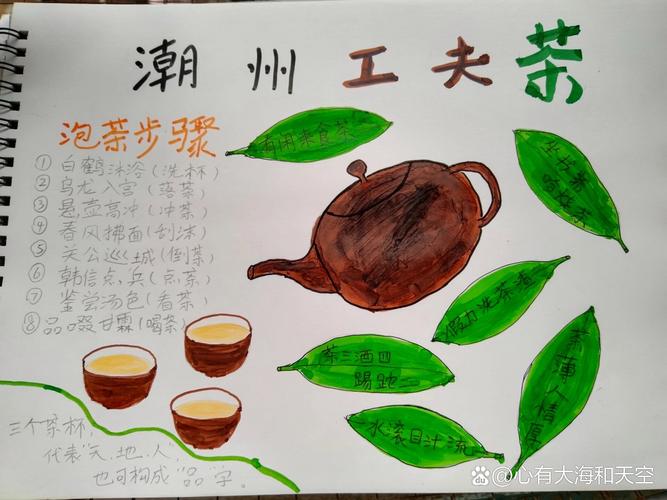 潮州工夫茶
泡茶步骤
① 白鹤沐浴(洗杯)
② 乌龙入宫(落茶)
③ 悬壶高冲(冲茶)
④ 春风拂面(刮沫)
⑤ 关公巡城(倒茶)
⑥ 韩信点兵(点茶)
⑦ 鉴尝汤色(看茶)
⑧ 品啜甘霖(喝茶)
三个茶杯,
代表"天、地、人",
也可构成"品"字。
茶三酒四
踢跎二
茶薄人情厚
水滚目汁流
Baidu百科 @心有大海和天空